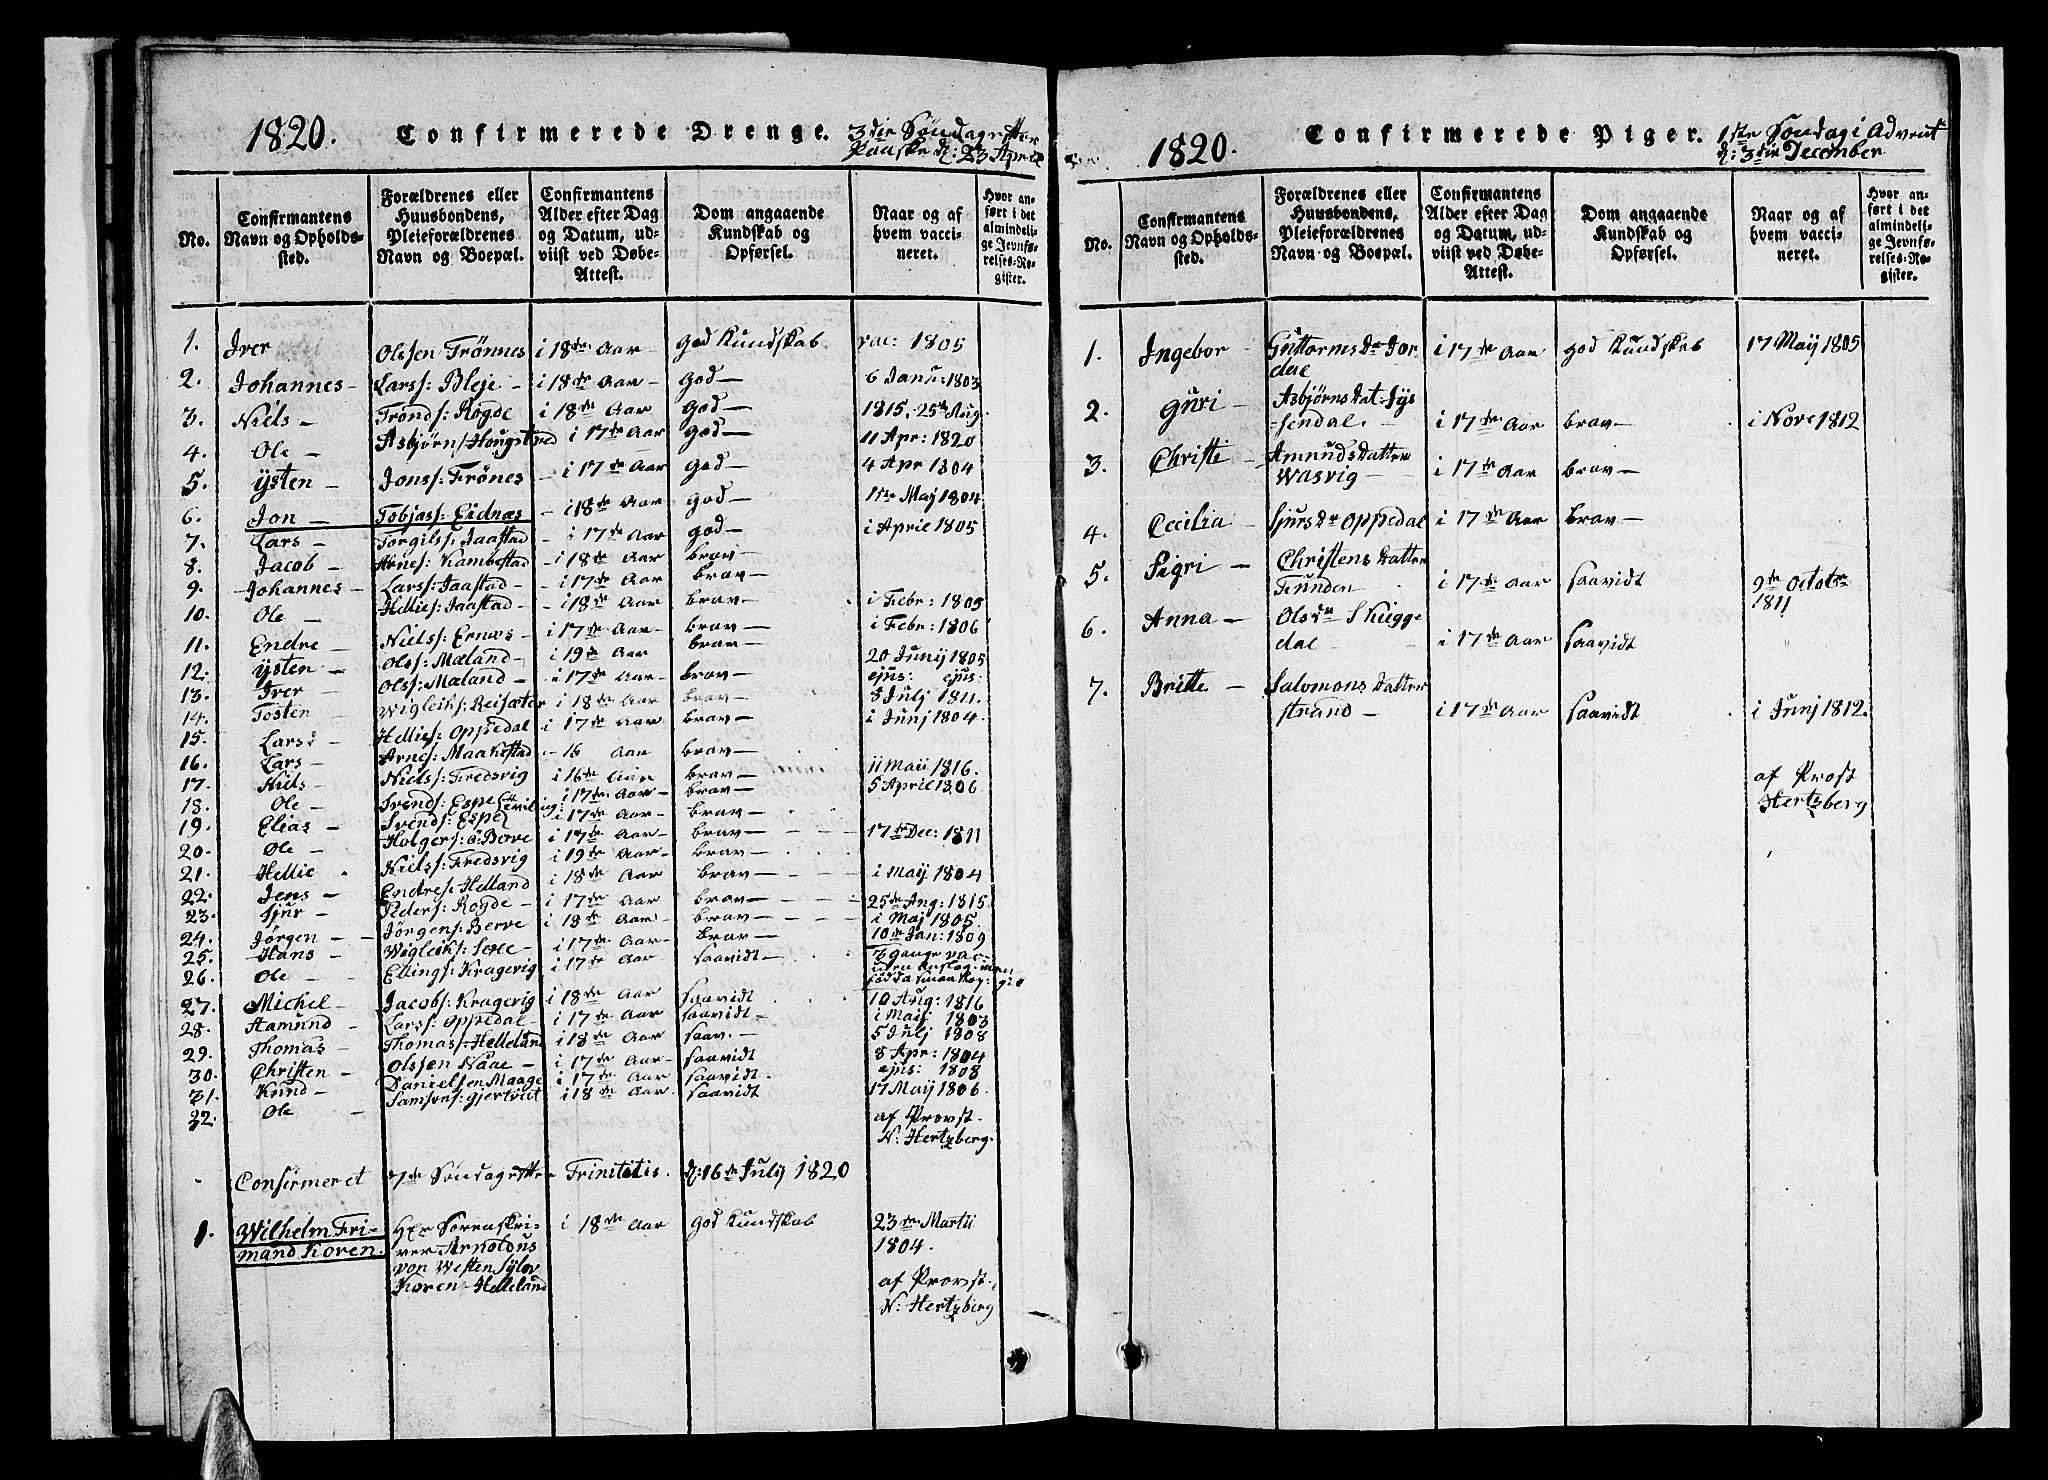 1820. Confirmerede Drenge. 3die Søndag efter
Paaske d: 23 April
No.
Confirmantens Navn og Opholdssted.
Forældrenes eller Huusbondens, Pleieforældrenes Navn og Boepæl.
Confirmantens Alder efter Dag og Datum, udviist ved Døbe-Attest.
Dom angaaende Kundskab og Opførsel.
Naar og af hvem vaccineret.
Hvor anført i det almindelige Jevnførelses-Register.
1. Iver Olssen Trønnes i 18de Aar god Kundskab vac: 1805
2. Johannes - Larss: Bleje - i 18de Aar - god - 6 Janu: 1803
3. Niels - Tronds: Rogde i 18de Aar god - 1815. 25de Aug.
4. Ole - Asbjørns: Hougstad i 17de Aar god - 11 Apr: 1820
5. Ysten - Jonss: Trönes - i 17de Aar god - 4 Apr 1804
6. Jon - Tobjass: Eidnæs - i 18de Aar god - 1ste Maj 1804
7. Lars - Torgilss: Jaastad - i 17de Aar god - i April 1805
8. Jacob - Arnes: Kambestad - i 18de Aar brav -
9. Johannes - Larss: Jaastad - - i 17de Aar brav -
10. Ole - Hellies: Jaastad - - i 18de Aar brav - i Febr: 1805
11. Endre - Nielss: Ernæs - i 17de Aar - brav - i Febr: 1806
12. Ysten - Olss: Mæland - i 19de Aar brav - 20 Junij 1805
13. Iver - Olss: Mæland - i 17de Aar - brav - ejus: ejus:
14. Tosten - Wigleiks: Reisæter i 18de Aar brav - 8 Julj 1811.
15. Lars - Hellies: Oppedal i 17de Aar brav - i Junj 1804.
16. Lars - Arnes: Maakestad - 16 Aar brav -
17. Niels - Nielss: Fredsvig i 16de Aar brav - 11 Maii 1816.
18. Ole - Svends: Espe i 17de Aar - brav - 5 April 1806
19. Elias - Svends: Espe i 17de Aar - brav -
20. Ole - Holgers: Bove i 17de Aar - brav - 17de Dec: 1811
21. Hellie Nielss: Fredsvig i 19de Aar - brav -
22. Jens - Endres: Helland i 18de Aar brav - i Maij 1804
23. Sjur - Peders: Rogde - i 17de Aar brav - 25de Aug: 1815
24. Jørgen - - Jørgens: Berve i 18de Aar brav - i Maj 1805
25. Hans - Wigleiks: i 17de Aar - brav - 10de Jan: 1809
26. Ole - Ellings: Kragevig i 17de Aar saavidt 3 gange vac:
27. Michel - Jacobs: Kragevig i 18de Aar saavidt 10 Aug: 1816
28. Aamund - Larss: Oppedal - i 17de Aar saavidt - i Maij 1803
29. Thomas - Thomas: Helleland i 18de Aar saav. - 5 Julj 1808
30. Christen - Olssen Naae - i 17de Aar - saavidt 8 Apr: 1804
31. Knud - Danielsen Maage i 17de Aar saavidt. ejus: 1808
32. Ole - Samsons: Gjertveit i 18de Aar saavidt 17 Maij 1806.
af Provst
N: Hertzberg.
Confirmeret 7de Søndag efter Trinitatis. d: 16de Julij 1820
1. Wilhelm Frimand Koren. Hr Sorenskriver Arnoldus von Westen Sylow Koren - Helleland i 18de Aar god Kundskab 23de Martii 1804.
af Provst
N: Hertzberg
1820. Confirmerede Piger. 1ste Søndag i Advent
d: 3die December
No.
Confirmantens Navn og Opholdssted.
Forældrenes eller Huusbondens, Pleieforældrenes Navn og Boepæl.
Confirmantens Alder efter Dag og Datum, udviist ved Døbe-Attest.
Dom angaaende Kundskab og Opførsel.
Naar og af hvem vaccineret.
Hvor anført i det almindelige Jevnførelses-Register.
1. Ingebor - Guttorms Dr Jordal i 17de Aar god Kundskab 17 Maij 1805
2. Guri - Asbjørns Dat: Syssendal. - i 17de Aar brav - i Novr 1812
3. Christi - Amunds Datter Wasvig - i 17de Aar brav -
4. Cecilia - Sjurs Dr Oppedal i 17de Aar brav -
5. Sigri - Christens Datter Trunden i 17de Aar saavidt 9de Octobr 1811
6. Anna - Ols dr Skieggedal i 17de Aar saavidt
7. Britte - Salomons Datter Strand - i 17de Aar saavidt i Junj 1812.
af Prost
Hertzberg